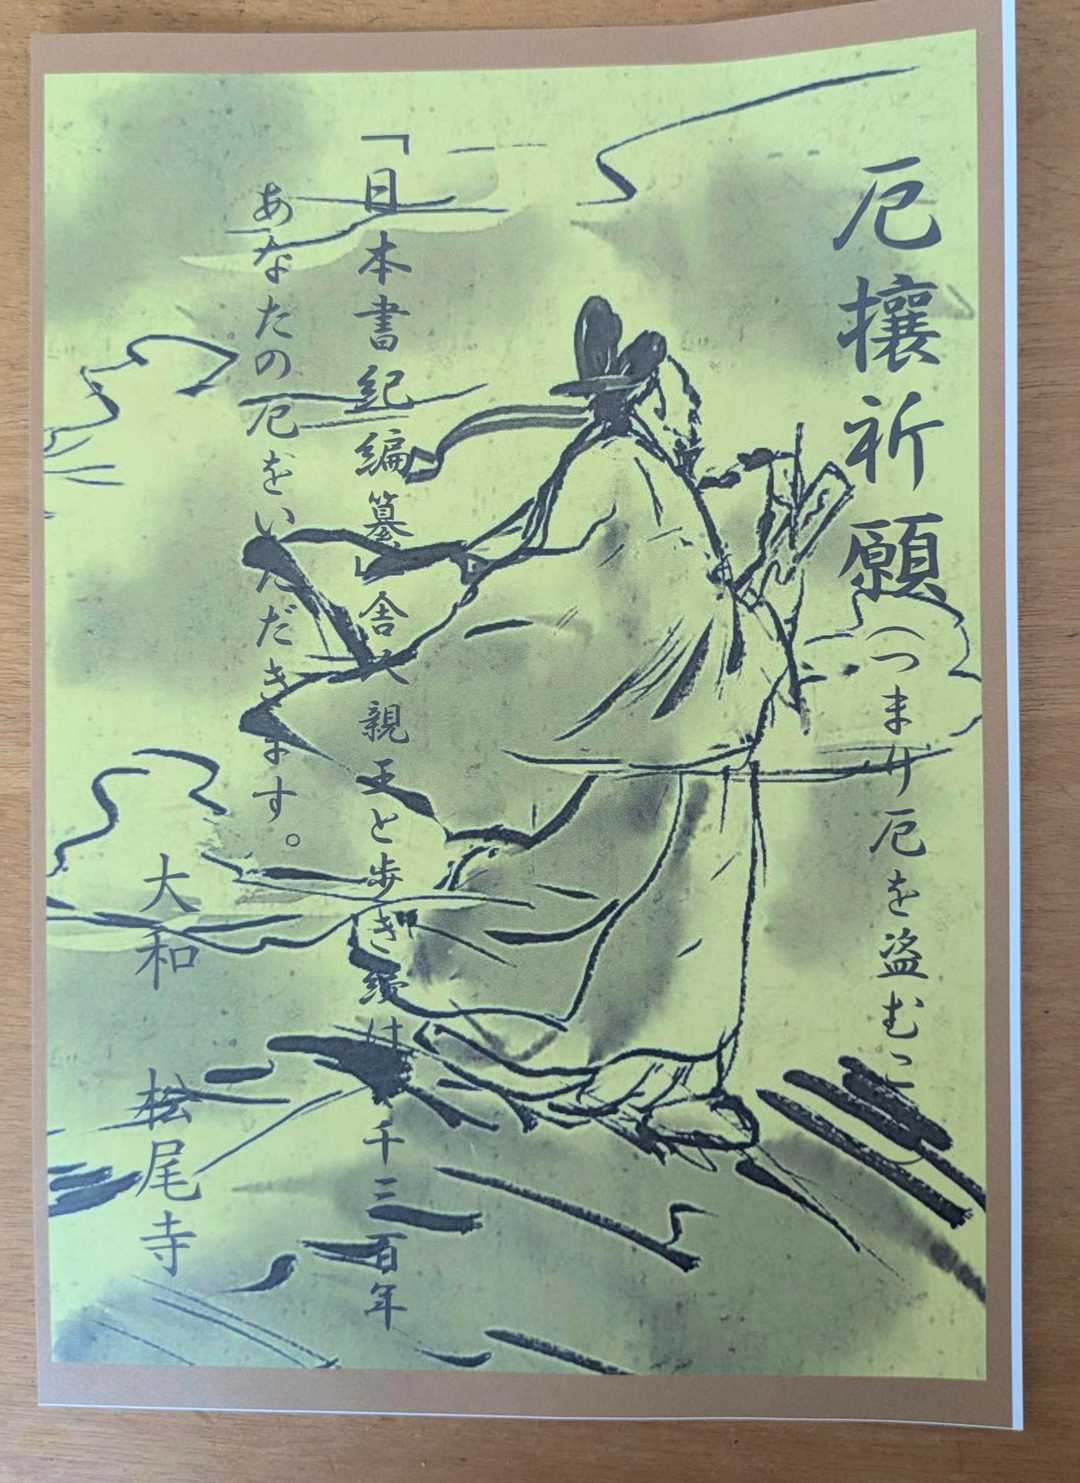 厄攘祈願(つまり厄を盗むこ
「日本書紀編纂」舎人親王と歩き続け千三百年
あなたの厄をいただきます。
大和 松尾寺